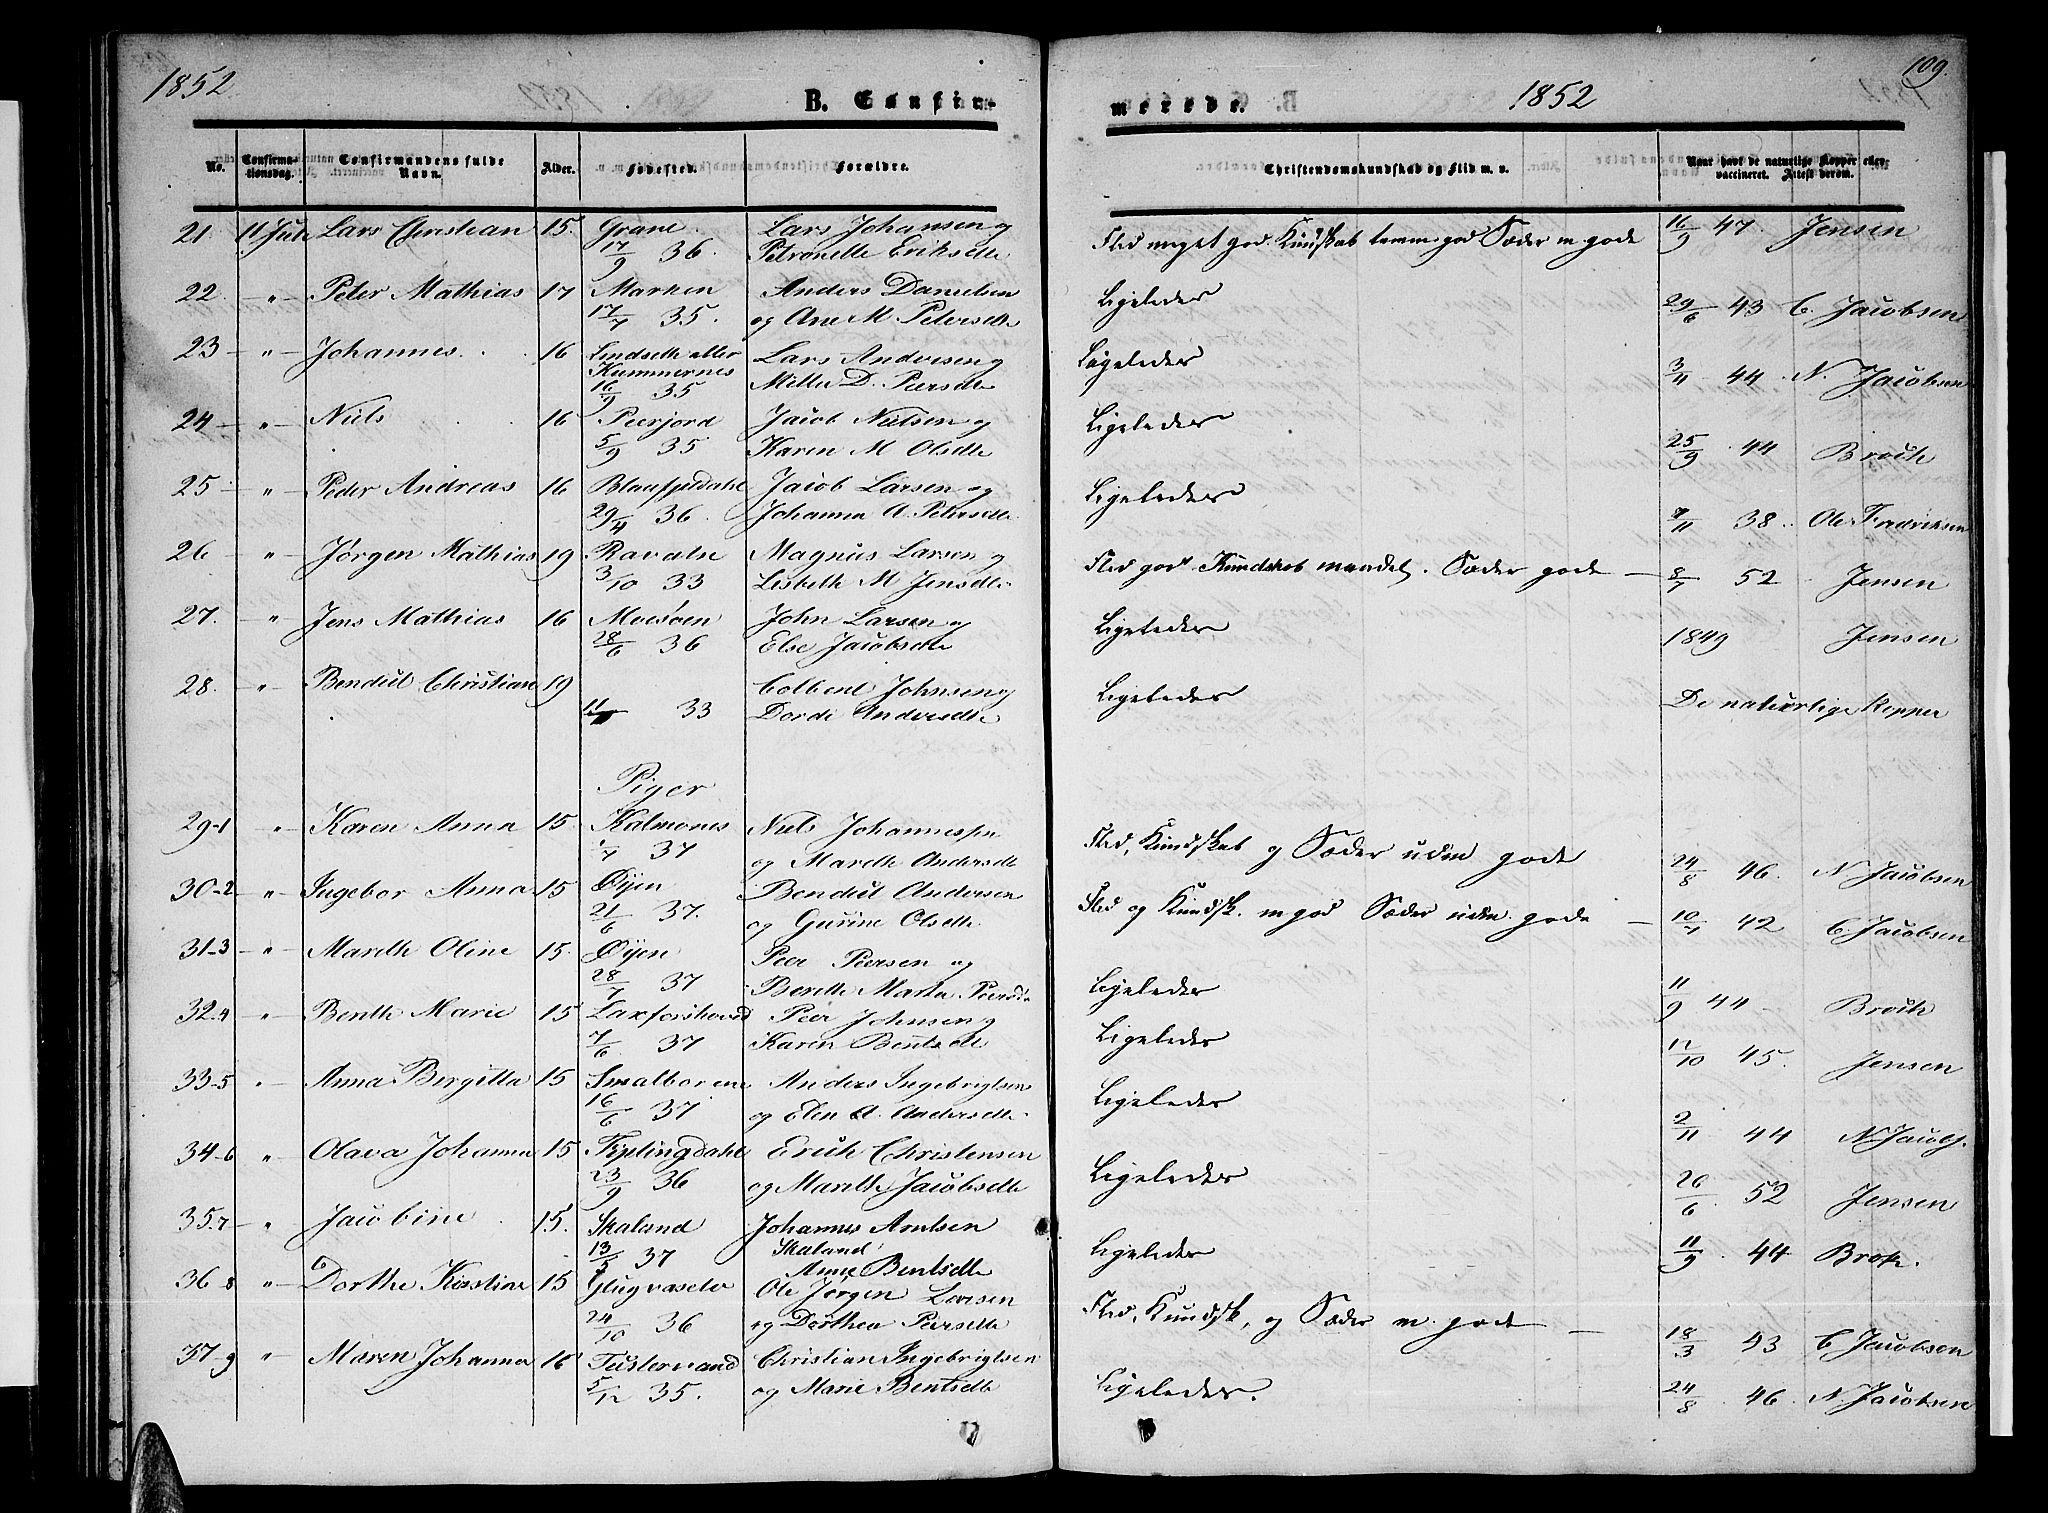 1852
B. Confir-
merede.
1852
109.
No.
Confirma-
tionsdag.
Confirmandens fulde
Navn.
Alder.
Fødested.
Forældre.
Christendomskundskab og Flid m. v.
Naar havt de naturlige Kopper eller
vaccineret. Attest derom.
21 11 Juli Lars Christian 15 Grane Lars Johansen og
17/9 36. Petronelle Eriksdtr
Flid meget god. Kundskab temm. god Sæder m gode 16/9 47. Jensen
22 " Peter Mathias 17 Marken Anders Danielsen
17/7 35. og Ane M. Petersdtr
Ligeledes 29/6 43 C. Jacobsen
23 " Johannes 16 Lindseth eller Lars Andersen og
Kummernes
16/9 35 Mille D. Peersdtr
Ligeledes 3/11 44 N. Jacobsen
24 " Niels 16 Peerjord Jacob Nielsen og
5/9 35 Karen M Olsdtr
Ligeledes 25/9 44 Broch
25 " Peder Andreas 16 Jacob Larsen og
29/4 36. Johanna A. Petersdtr
Ligeledes 7/11 38. Ole Fredriksen
26 " Jørgen Mathias 19 Magnus Larsen og
3/10 33 Lisbeth M Jensdtr
Flid god Kundskab maadel. Sæder gode 8/7 52 Jensen
27. " Jens Mathias 16 Moesøen John Larsen og
28/6 36 Else Jacobsdtr
Ligeledes 1849 Jensen
28. " Bendict Christian 19 Colbent Johnsen og
33 Dorde Andersdtr
Ligeledes De naturlige Kopper
Piger
29-1 " Karen Anna 15 Kalmones Niels Johannesen
1/7 37 og Mareth Andersdtr
Flid, Kundskab og Sæder uden gode 24/8 46. N Jacobsen
30-2 " Ingebor Anna 15 Øyen Bendict Andersen
21/6 37. og Gurine Olsdtr
Flid og Kundsk. m god Sæder uden gode 10/7 42 C. Jacobsen
31-3 " Mareth Oline 15. Øyen Peer Peersen og
28/7 37 Bereth Marta Peersdtr
Ligeledes 11/9 44 Broch
32-4 " Benthe Marie 15 Laxforshoved Peer Johnsen og
7/6 37 Karen Bentsdtr
Ligeledes 45. Jensen
33-5 " Anna Bergitta 15 Smalborene Anders Ingebrigtsen
16/6 37 og Elen A. Andersdtr
Ligeledes 2/11 44 N. Jacobs.
34-6 " Olava Johanna 15 Erich Christensen
23/9 36 og Mareth Jacobsdtr
Ligeledes 26/6 52 Jensen
35-7 " Jacobine 15. Skaland Johannes Arntsen
Skaland
13/5 37 Anne Bentsdtr
Ligeledes 11/9 44 Brok.
36-8 " Dorthe Kirstine 15 Ole Jørgen Larsen
24/10 36 og Dorthea Peersdtr
Flid, Kundsk, og Sæder m. gode 18/3 43 C Jacobsen
37-9 " Maren Johanna 16 Tustervand Christian Ingebrigtsen
5/12 35. og Marie Bentsdtr
Ligeledes. 24/8 46 N. Jacobsen